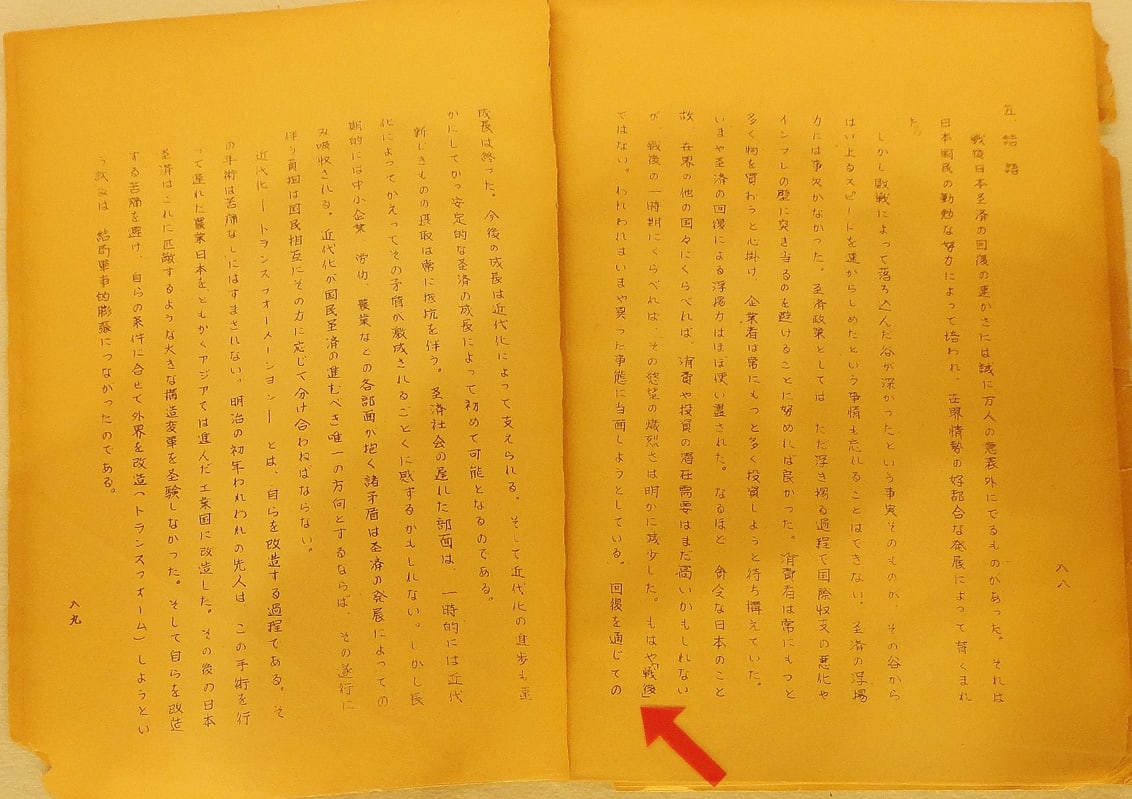 五、結語
戦後日本圣済の回復の速かさには誠に万人の意表外にでるものがあった。それは
日本国民の勤勉な努力によって培われ、世界情勢の好都合な発展によって育くまれ
た。
しかし敗戦によって落ち込んだ谷が深かったという事実そのものが、その谷から
はい上るスピードを速からしめたという事情も忘れることはできない。圣済の浮揚
力には事欠かなかった。圣済政策としては、ただ浮き揚る過程で国際収支の悪化や
インフレの壁に突き当るのを避けることに努めれば良かった。消費者は常にもっと
多く物を買おうと心掛け、企業者は常にもっと多く投資しようと待ち構えていた。
いまや圣済の回復による浮揚力はほぼ使い盡された。なるほど、貧乏な日本のこと
故、世界の他の国々にくらべれば、消費や投資の潜在需要はまだ高いかもしれない
が、戦後の一時期にくらべれば、その慾望の熾烈さは明かに減少した。もはや「戦後」
ではない。われわれはいまや異った事態に当面しようとしている。回復を通じての
八八
成長は終った。今後の成長は近代化によって支えられる。そして近代化の進歩も速
かにしてかつ安定的な圣済の成長によって初めて可能となるのである。
新しきものの摂取は常に抵抗を伴う。圣済社会の遅れた部面は、一時的には近代
化によってかえってその矛盾が激成されるごとくに感ずるかもしれない。しかし長
期的には中小企業、労働、農業などの各部面が抱く諸矛盾は圣済の発展によっての
み吸収される。近代化が国民圣済の進むべき唯一の方向とするならば、その遂行に
伴う負担は国民相互にその力に応じて分け合わねばならない。
近代化――トランスフォーメーション――とは、自らを改造する過程である。そ
の手術は苦痛なしにはすまされない。明治の初年われわれの先人は、この手術を行
って遅れた農業日本をともかくアジアでは進んだ工業国に改造した。その後の日本
圣済はこれに匹敵するような大きな構造変革を圣験しなかった。そして自らを改造
する苦痛を避け、自らの条件に合せて外界を改造(トランスフォーム)しようとい
う試みは、結局軍事的膨張につながったのである。
八九